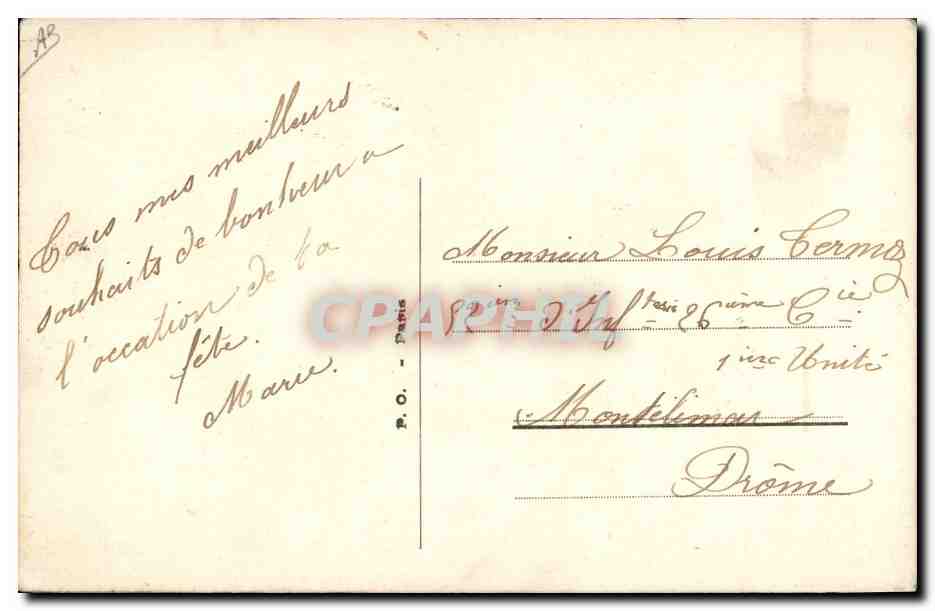 AB
Tous mes meilleurs
souhaits de bonheur a
l'occation de ta
fête.
Marie.
P. O. - Paris
CPAPHIL
Monsieur Louis Termoz
52 d'Inf terie 26 ième Cie
1 ière Unité
Montélimar
Drôme